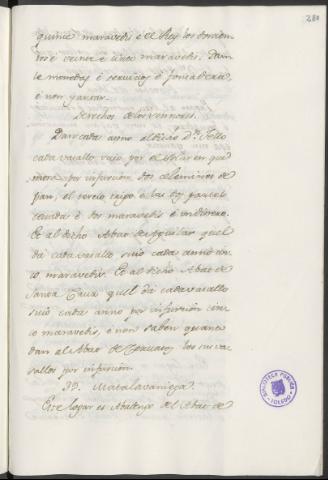 280
quince maravedis é el Rey los doscien
tos é veinte é cinco maravedis. Dan
le monedas é servicios é fonsadera
é non yantar.
Derechos de los Señores.
Dan cada anno al dicho Dn. Tello
cada vasallo suyo por el solar en que
mora por infurcion dos celemines de
pan, el tercio trigo é las dos partes
cevada é dos maravedis é un dinero.
Et al dicho Abat de Aguilar quel
dá cada vasallo suio cada anno cin
co maravedis. Et al dicho Abat de
Santa Cruz quel dá cada vasallo
suio cada anno por infurcion cinc
co maravedis, é non saben quanto
dan al Abat de los sus va
sallos por infurcion.
Matalavaniega.
Este logar es Abadengo del Abat de
BIBLIOTECA PUBLICA
TOLEDO